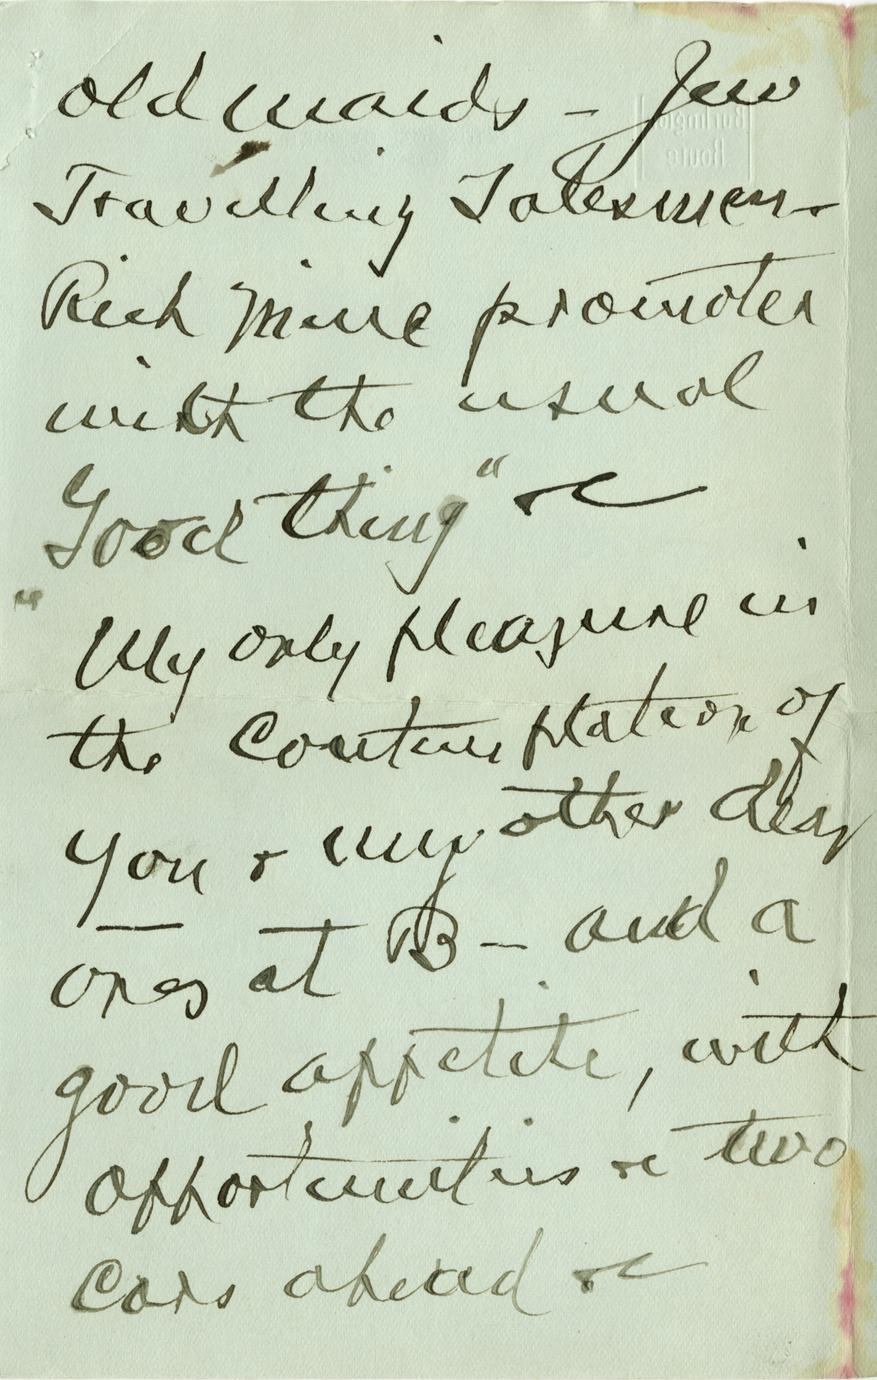 old maids - Jew
Travelling Salesmen -
Rich Mine promoter
with the usual
Good thing" &c
"My only pleasure in
the Contemplation of
you & my other dear
ones at B - and a
good appetite, with
opportunities &c two
Cars ahead &c
Burlington
Route